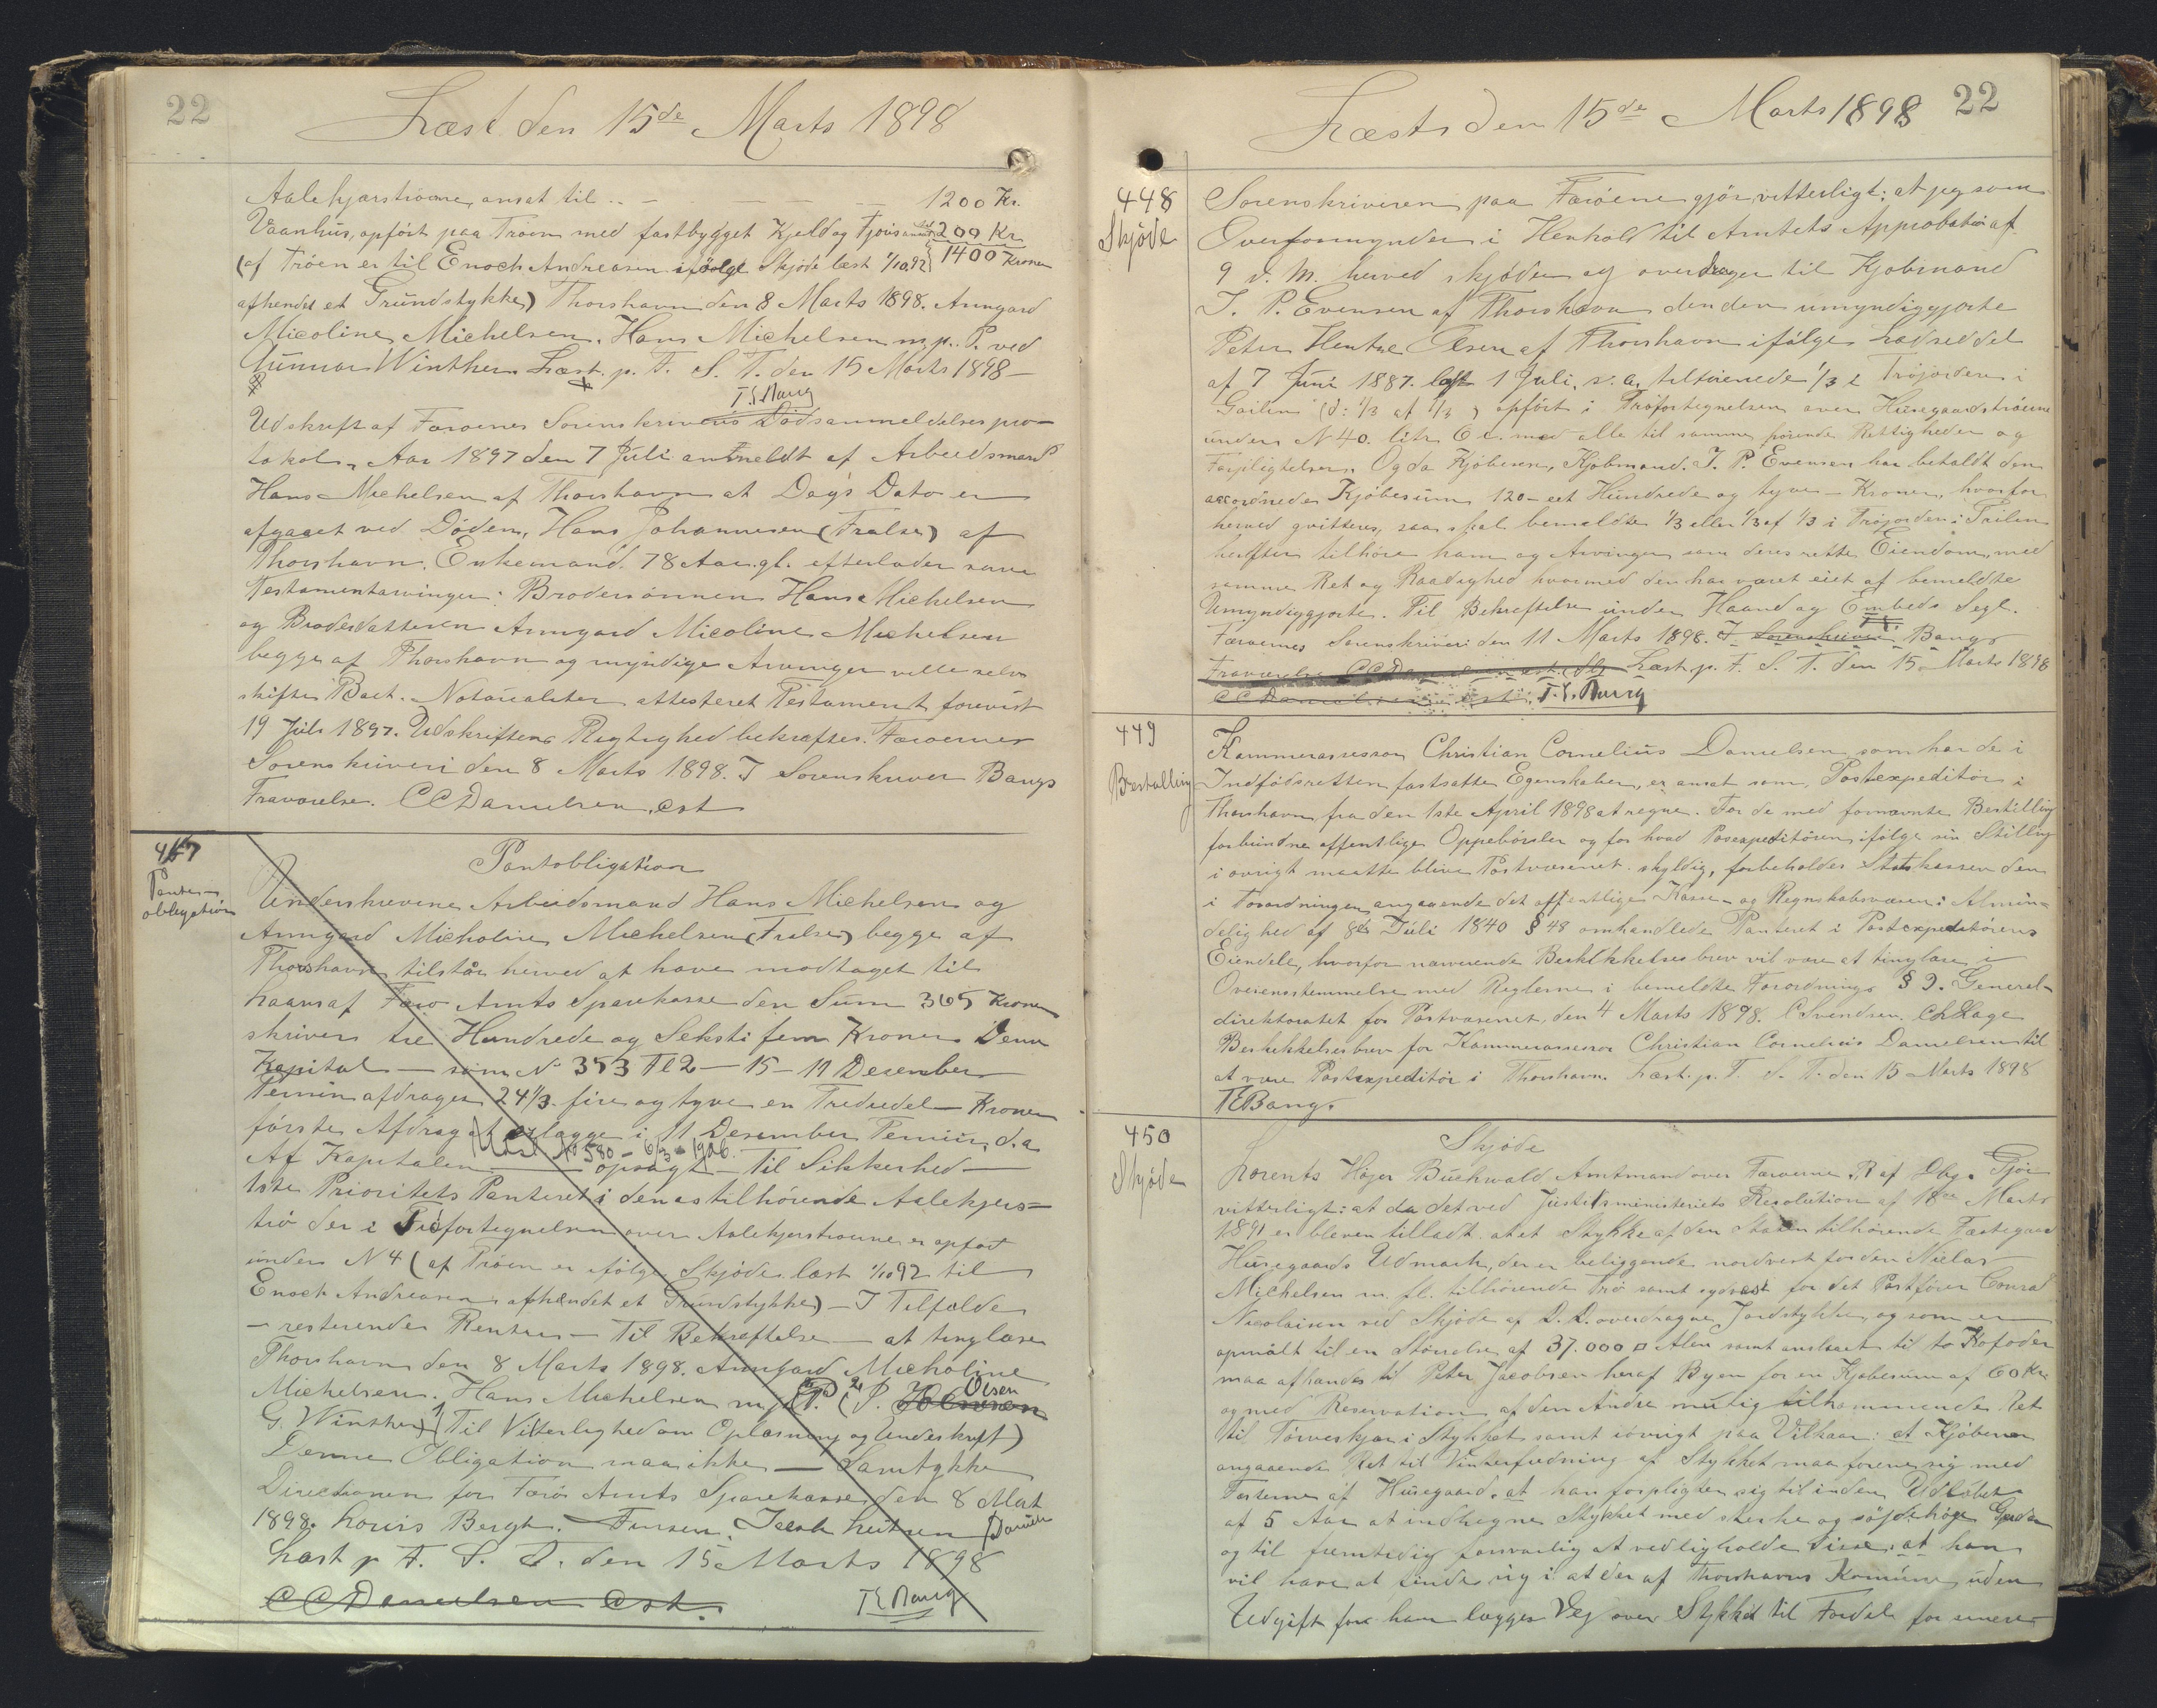 22
Læst den 15de Marts 1898
Aalekjærstrøerne, ansat til .. - - - - - 1200 Kr.
Vaanhus, opført paa Trøen med fastbygget Kjeld og Fjøs ansat til 200 Kr.
(af Trøen er til Enoch Andreasen ifølge Skjøde læst 1/10.92 1400 Kroner
afhendet et Grundstykke) Thorshavn den 8 Marts 1898. Anngard
Micoline Michelsen. Hans Michelsen m. p. P. ved
Gunnar Winther. Læst. p. F. S. T. den 15 Marts 1898 -
T. E. Bang
Udskrift af Færøernes Sorenskriveris Dødsanmeldelsespro-
tokol, Aar 1897 den 7 Juli anmeldt af Arbeidsmand
Hans Michelsen af Thorshavn at Dags Dato er
afgaaet ved Døden, Hans Johannesen (Frælse) af
Thorshavn. Enkemand. 78 Aar gl. efterlader som
Testamentarvinger: Brodersønnen Hans Michelsen
og Broderdatteren Anngard Micoline Michelsen
begge af Thorshavn og myndige Arvinger ville selv
skifte Boet. Notarialiter attesteret Testament forevist
19 Juli 1897. Udskriftens Rigtighed bekræftes. Færøernes
Sorenskriveri den 8 Marts 1898. I Sorenskriver Bangs
Fraværelse. CCDanielsen, cst
447
Pante-
obligation
Pantobligation
Underskrevne Arbeidsmand Hans Michelsen og
Anngard Micholine Michelsen (Frælse) begge af
Thorshavn tilstår herved at have modtaget til
Laans af Færø Amts Sparekasse den Sum 365 Kroner
skriver tre Hundrede og Seksti fem Kroner Denne
Kapital — som No 353 Fl 2 - 15 - 11 Desember
Termin afdrages 24 1/3. fire og tyve en Trediedel Kroner
første Afdrag at erlægge i 11 Desember Termin, d. a
Udsl. No 580 - 6/3 - 1906.
Af Kapitalen — opsagt - Til Sikkerhed -
1ste Prioritets Panteret i den os tilhørende Aalekjers-
trø der i Trøfortegnelsen over Aalekjerstrøerne er opført
under N 4 (af Trøen er ifølge Skjøde læst 1/10 92 til
Enoch Andreasen afhændet et Grundstykke) - I Tilfælde
- resterende Renter - Til Bekræftelse - at tinglæse
Thorshavn den 8 Marts 1898. Anngard Micholine
Michelsen. Hans Michelsen m. p. P. (2 P. Olsen
G. Winther) 1 (Til Vitterlighed om Oplæsning og Underskrift)
Denne Obligation maa ikke - Samtykke
Directionen for Færø Amts Sparekasse den 8 Mart
1898. Louis Bergh. Finsen. Jacob Lützen / Danielsen
Læst p F. S. T. den 15 Marts 1898
CCDanielsen Cst. T E Bang
22
Læst den 15de Marts 1898
448
Skjøde
Sorenskriveren paa Færøerne gjør vitterligt: at jeg som
Overformynder i Henhold til Amtets Approbation af
9 d. M. herved skjøder og overdrager til Kjøbmand
J. P. Evensen af Thorshavn den den umyndiggjorte
Peter Hentze Olsen af Thorshavn ifølge Lodseddel
af 7 Juni 1887. læst 1 Juli, s. a. tilhørende 1/3 i Trøjorden i
Gailin (d: 1/3 af 1/3) opført i Trøfortegnelsen over Husegaardstrøerne
under N 40. litr. 6 c. med alle til samme hørende Rettigheder og
Forpligtelser. Og da Kjøberen, Kjøbmand J. P. Evensen har betalt den
accorderede Kjøbesum 120 - eet Hundrede og tyve - Kroner, hvorfor
herved qvitteres, saa skal bemeldte 1/3 eller 1/3 af 1/3 i Trøjorden i Trilin
herefter tilhøre ham og Arvinger som deres rette Eiendom, med
samme Ret og Raadighed hvormed den har været eiet af bemeldte
Umyndiggjorte. Til Bekræftelse under Haand og Embeds Segl.
Færøernes Sorenskriveri den 11 Marts 1898. I Sorenskriver Bangs
Fraværelse CCDanielsen cst. Læst. p. F. S. T. den 15. Marts 1898
CCDanielsen cst. T. E. Bang
449
Bestalling
Kammerassessor Christian Cornelius Danielsen som har de i
Indfødsretten fastsatte Egenskaber, er ansat som Postexpeditør i
Thorshavn fra den 1ste April 1898 at regne. For de med fornævnte Bestilling
forbundne offentlige Oppebørsler og for hvad Posexpeditøren ifølge sin Stilling
i øvrigt maatte blive Postvæsenet skyldig, forbeholdes Statskassen den
i Forordningen angaaende det offentlige Kasse- og Regnskabsvæsen i Almin-
delighed af 8de Juli 1840 § 48 omhandlede Panteret i Postexpeditørens
Eiendele, hvorfor nærværende Beskikkelsesbrev vil være at tinglæse i
Overensstemmelse med Reglerne i bemeldte Forordnings § 9. General-
direktoratet for Postvæsenet, den 4 Marts 1898. C Svendsen. Ch Hage
Beskikkelsesbrev for Kammerassessor Christian Cornelius Danielsen til
at være Postexpeditør i Thorshavn. Læst. p. F. S. T. den 15 Marts 1898
TEBang.
450
Skjøde
Skjøde
Lorents Høyer Buchwald Amtmand over Færøerne, R af Dbg. Gjør
vitterligt: at da det ved Justitsministeriets Resolution af 18de Marts
1891 er bleven tilladt at et Stykke af den Staten tilhørende Fæstegaard
Husegaards Udmark, der er beliggende nordvest for den Niclas
Michelsen m. fl. tilhørende Trø samt sydvest for det Postfører Conrad
Nicolaisen ved Skjøde af D. D. overdragne Jordstykke, og som er
opmålt til en Størrelse af 37.000 □ Alen samt anslaaet til to Kofoder
maa afhændes til Peter Jacobsen heraf Byen for en Kjøbesum af 60 Kr.
og med Reservation af den Andre mulig tilkommende Ret
til Tørveskjær i Stykket samt iøvrigt paa Vilkaar: at Kjøberen
angaaende Ret til Vinterfodring af Stykket maa forene sig med
Fæsterne af Husegaard. at han forpligter sig til inden Udløbet
af 5 Aar at indhegne Stykket med stærke og højde Gjerder
og til fremtidig forsvarlig at vedligholde disse, at han
vil have at finde sig i at der af Thorshavns Komune uden
Udgift for ham lægges Vej over Stykket til Fordel for